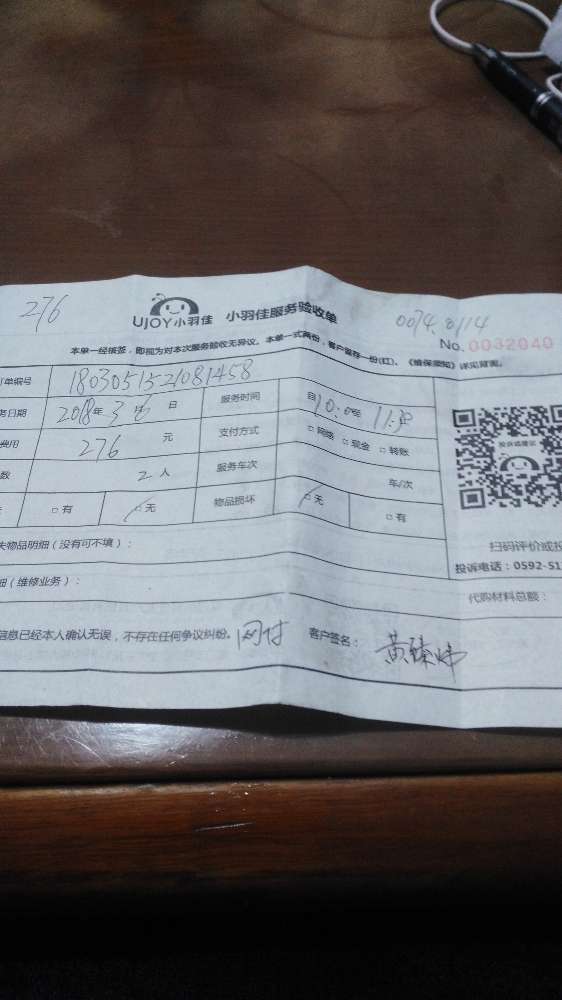 276
UJOY小羽佳 小羽佳服务验收单
0074.8/14
No. 0032040
本单一经填签,即视为对本次服务验收无异议。本单一式两份,客户留存一份(红)。《维保须知》详见背面。
单编号 1803051521081458
务日期 2018年3月6日 服务时间 自10:00至11:30
费用 276 元 支付方式 □网络 □现金 □转账
数 2人 服务车次 车/次
□有 □无 物品损坏 □无 □有
投诉或建议
扫码评价或投
失物品明细(没有可不填):
投诉电话:0592-51
细(维修业务):
代购材料总额:
信息已经本人确认无误,不存在任何争议纠纷。网付 客户签名: